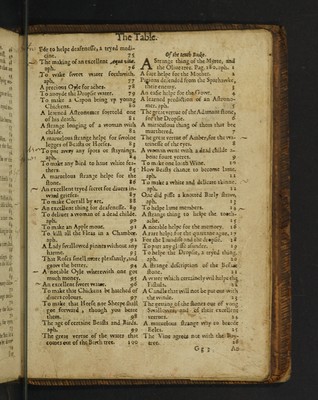 The Table.
For to helpe deafenesse, a tryed medicine. 75
The making of an excellent aqua vitæ.
aph. 76
To make sweet water forthwith,
aph. 77
A precious Oyle for aches. 78
To amende the Dropsie water. 79
To make a Capon bring up young
Chickens. 80
A learned Astronomer foretold one
of his death. 81
A strange longing of a woman with
childe. 82
A marvelous strange helpe for
legges of Beasts or Horses. 83
To put away any spots or staynings,
aph. 84
To make any Bird to have white feathers. 85
A marvelous strange helpe for the
stone. 86
An excellent tryed secret for divers inward griefes. 87
To make Corrall by art. 88
An excellent thing for deafenesse. 89
To deliver a woman of a dead childe.
aph. 90
To make an Apple move. 91
To kill all the Fleas in a Chamber.
aph. 92
A Lady swallowed pinnes without any
harme. 93
That Roses smell more pleasantly, and
grow the better. 94
A notable Oyle wherewith one got
much money. 95
An excellent sweet water. 96
To make that Chickens be hatched of
divers colours. 97
To make that Horse nor Sheepe shall
not forward, though you beate
them. 98
The age of certaine Beasts and Birds.
aph. 99
The great vertue of the water that
comes out of the Birch tree. 100
Of the tenth Booke.
A Strange thing of the Myrre, and
the Olive tree. Pag. 180. aph. 1
A sure helpe for the Mother. 2
Pigeons defended from the Sparhawke,
their enemy. 3
An easie helpe for the Gowt. 4
A learned prediction of an Astronomer, aph. 5
The great vertue of the Adamant stone,
for the Dropsie. 6
A miraculous thing of them that bee
murthered. 7
The great vertue of Amber, for the waterinesse of the eyes. 8
A woman went with a dead childe about foure yeeres. 9
To make one beath Wine. 10
How Beasts chance to become lame,
aph. 11
To make a white and delicate skinne.
aph. 12
One did pisse a knotted Barly straw,
aph. 13
To helpe lame members. 14
A strange thing to helpe the toothache. 15
A notable helpe for the memory. 16
A rare helpe for the quartane ague. 17
For the Jaundise and the Dropsie. 18
To put any glasse asunder. 19
To helpe the Dropsie, a tryed thing,
aph. 20
A strange description of the Bezoar
stone. 21
A water which certainely will helpe the
Fistula. 22
A Candle that will not be put out with
the winde. 23
The getting of the stones out of young
Swallowes, and of their excellent
vertues. 24
A miraculous strange way to breede
Beles. 25
The Vine agrees not with the Baytree. 26
Gg 3
An